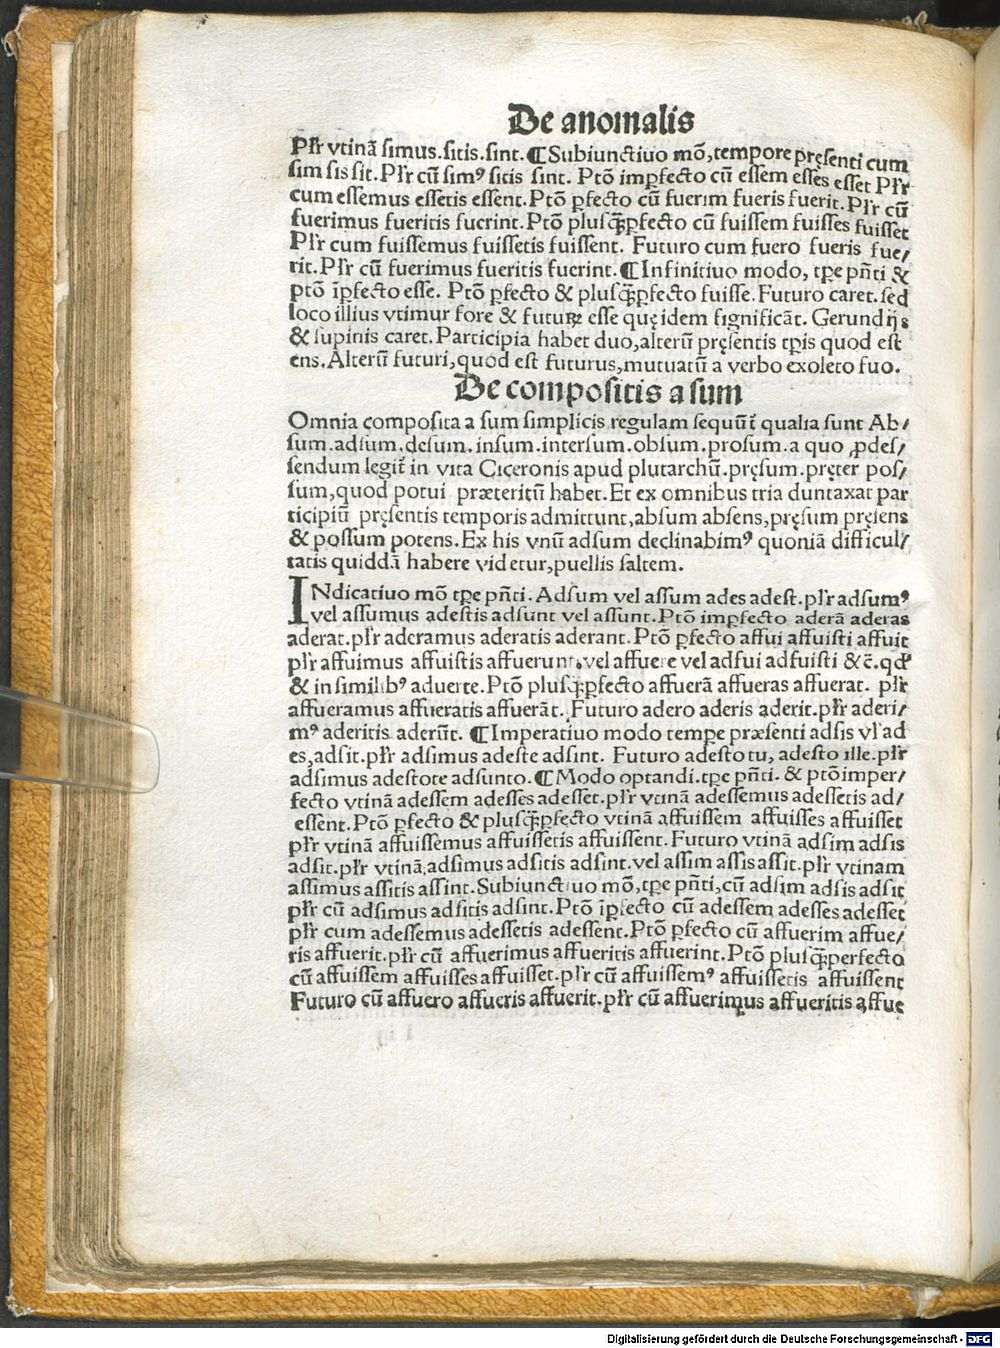 De anomalis
Pl̃r vtinã simus.sitis.sint.¶Subiunctiuo mõ,tempore pręsenti cum
sim sis sit.Pl̃r cũ simꝰ sitis sint. Ptõ imꝑfecto cũ essem esses esset Pl̃r
cum essemus essetis essent.Ptõ ꝑfecto cũ fuerim fueris fuerit.Pl̃r cũ
fuerimus fueritis fucrint. Ptõ plusq̃ꝑfecto cũ fuissem fuisses fuisset
Pl̃r cum fuissemus fuissetis fuissent. Futuro cum fuero fueris fue/
rit.Pl̃r cũ fuerimus fueritis fuerint.¶Infinitiuo modo, tꝑe pñti &
ptõ ĩꝑfecto esse. Ptõ ꝑfecto & plusq̃ꝑfecto fuisse.Futuro caret.sed
loco illius vtimur fore & futuꝝ esse quę idem significãt. Gerundijs
& supinis caret.Participia habet duo,alterũ pręsentis tꝑis quod est
ens.Alterũ futuri,quod est futurus,mutuatũ a verbo exoleto fuo.
De compositis a sum
Omnia composita a sum simplicis regulam sequũt̃ qualia sunt Ab/
sum.adsum.desum.insum.intersum.obsum.prosum.a quo ꝓdes/
sendum legit̃ in vita Ciceronis apud plutarchũ.pręsum.pręter pos/
sum,quod potui præteritũ habet.Et ex omnibus tria duntaxat par
ticipiũ pręsentis temporis admittunt,absum absens,pręsum pręsens
& possum potens.Ex his vnũ adsum declinabimꝰ quoniã difficul/
tatis quiddã habere videtur,puellis saltem.
INdicatiuo mõ tꝑe pñti.Adsum vel assum ades adest.pl̃r adsumꝰ
vel assumus adestis adsunt vel assunt.Ptõ imꝑfecto aderã aderas
aderat.pl̃r aderamus aderatis aderant.Ptõ ꝑfecto affui affuisti affuit
pl̃r affuimus affuistis affuerunt.vel affuere vel adfui adfuisti &c̃.qđ
& in similibꝰ aduerte.Ptõ plusq̃ꝑfecto affuerã affueras affuerat. pl̃r
affueramus affueratis affuerãt. Futuro adero aderis aderit.pl̃r aderi/
mꝰ aderitis aderũt. ¶Imperatiuo modo tempe præsenti adsis vl̃ ad
es,adsit.pl̃r adsimus adeste adsint. Futuro adesto tu, adesto ille.pl̃r
adsimus adestote adsunto.¶Modo optandi.tꝑe pñti. & ptõ imper/
fecto vtinã adessem adesses adesset.pl̃r vtinã adessemus adessetis ad/
essent.Ptõ ꝑfecto & plusq̃ꝑfecto vtinã affuissem affuisses affuisset
pl̃r vtinã affuissemus affuissetis affuissent.Futuro vtinã adsim adsis
adsit.pl̃r vtinã,adsimus adsitis adsint.vel assim assis assit.pl̃r vtinam
assimus assitis assint.Subiunctiuo mõ,tꝑe pñti,cũ adsim adsis adsit
pl̃r cũ adsimus adsitis adsint.Ptõ ĩꝑfecto cũ adessem adesses adesset
pl̃r cum adessemus adessetis adessent.Ptõ ꝑfecto cũ affuerim affue/
ris affuerit.pl̃r cũ affuerimus affueritis affuerint.Ptõ plusq̃perfecto
cũ affuissem affuisses affuisset.pl̃r cũ affuissemꝰ affuissetis affuissent
Futuro cũ affuero affueris affuerit.pl̃r cũ affuerimus affueritis affue
Digitalisierung gefördert durch die Deutsche Forschungsgemeinschaft - DFG